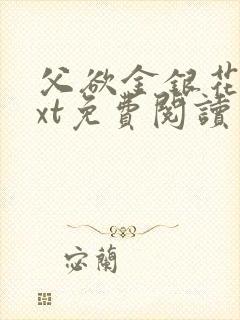 父欲金銀花
xt免費閱讀
宓蘭